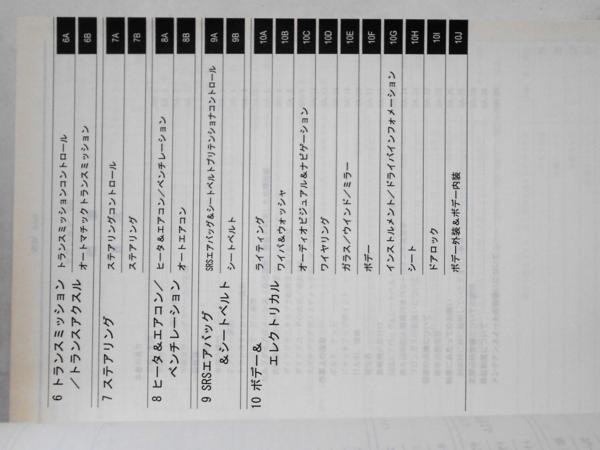 6 トランスミッション
／トランスアクスル
トランスミッションコントロール 6A
オートマチックトランスミッション 6B
7 ステアリング
ステアリングコントロール 7A
ステアリング 7B
8 ヒータ＆エアコン／
ベンチレーション
ヒータ＆エアコン／ベンチレーション 8A
オートエアコン 8B
9 SRSエアバッグ
＆シートベルト
SRSエアバッグ＆シートベルトプリテンショナコントロール 9A
シートベルト 9B
10 ボデー＆
エレクトリカル
ライティング 10A
ワイパ＆ウォッシャ 10B
オーディオビジュアル＆ナビゲーション 10C
ワイヤリング 10D
ガラス／ウインド／ミラー 10E
ボデー 10F
インストルメント／ドライバインフォメーション 10G
シート 10H
ドアロック 10I
ボデー外装＆ボデー内装 10J